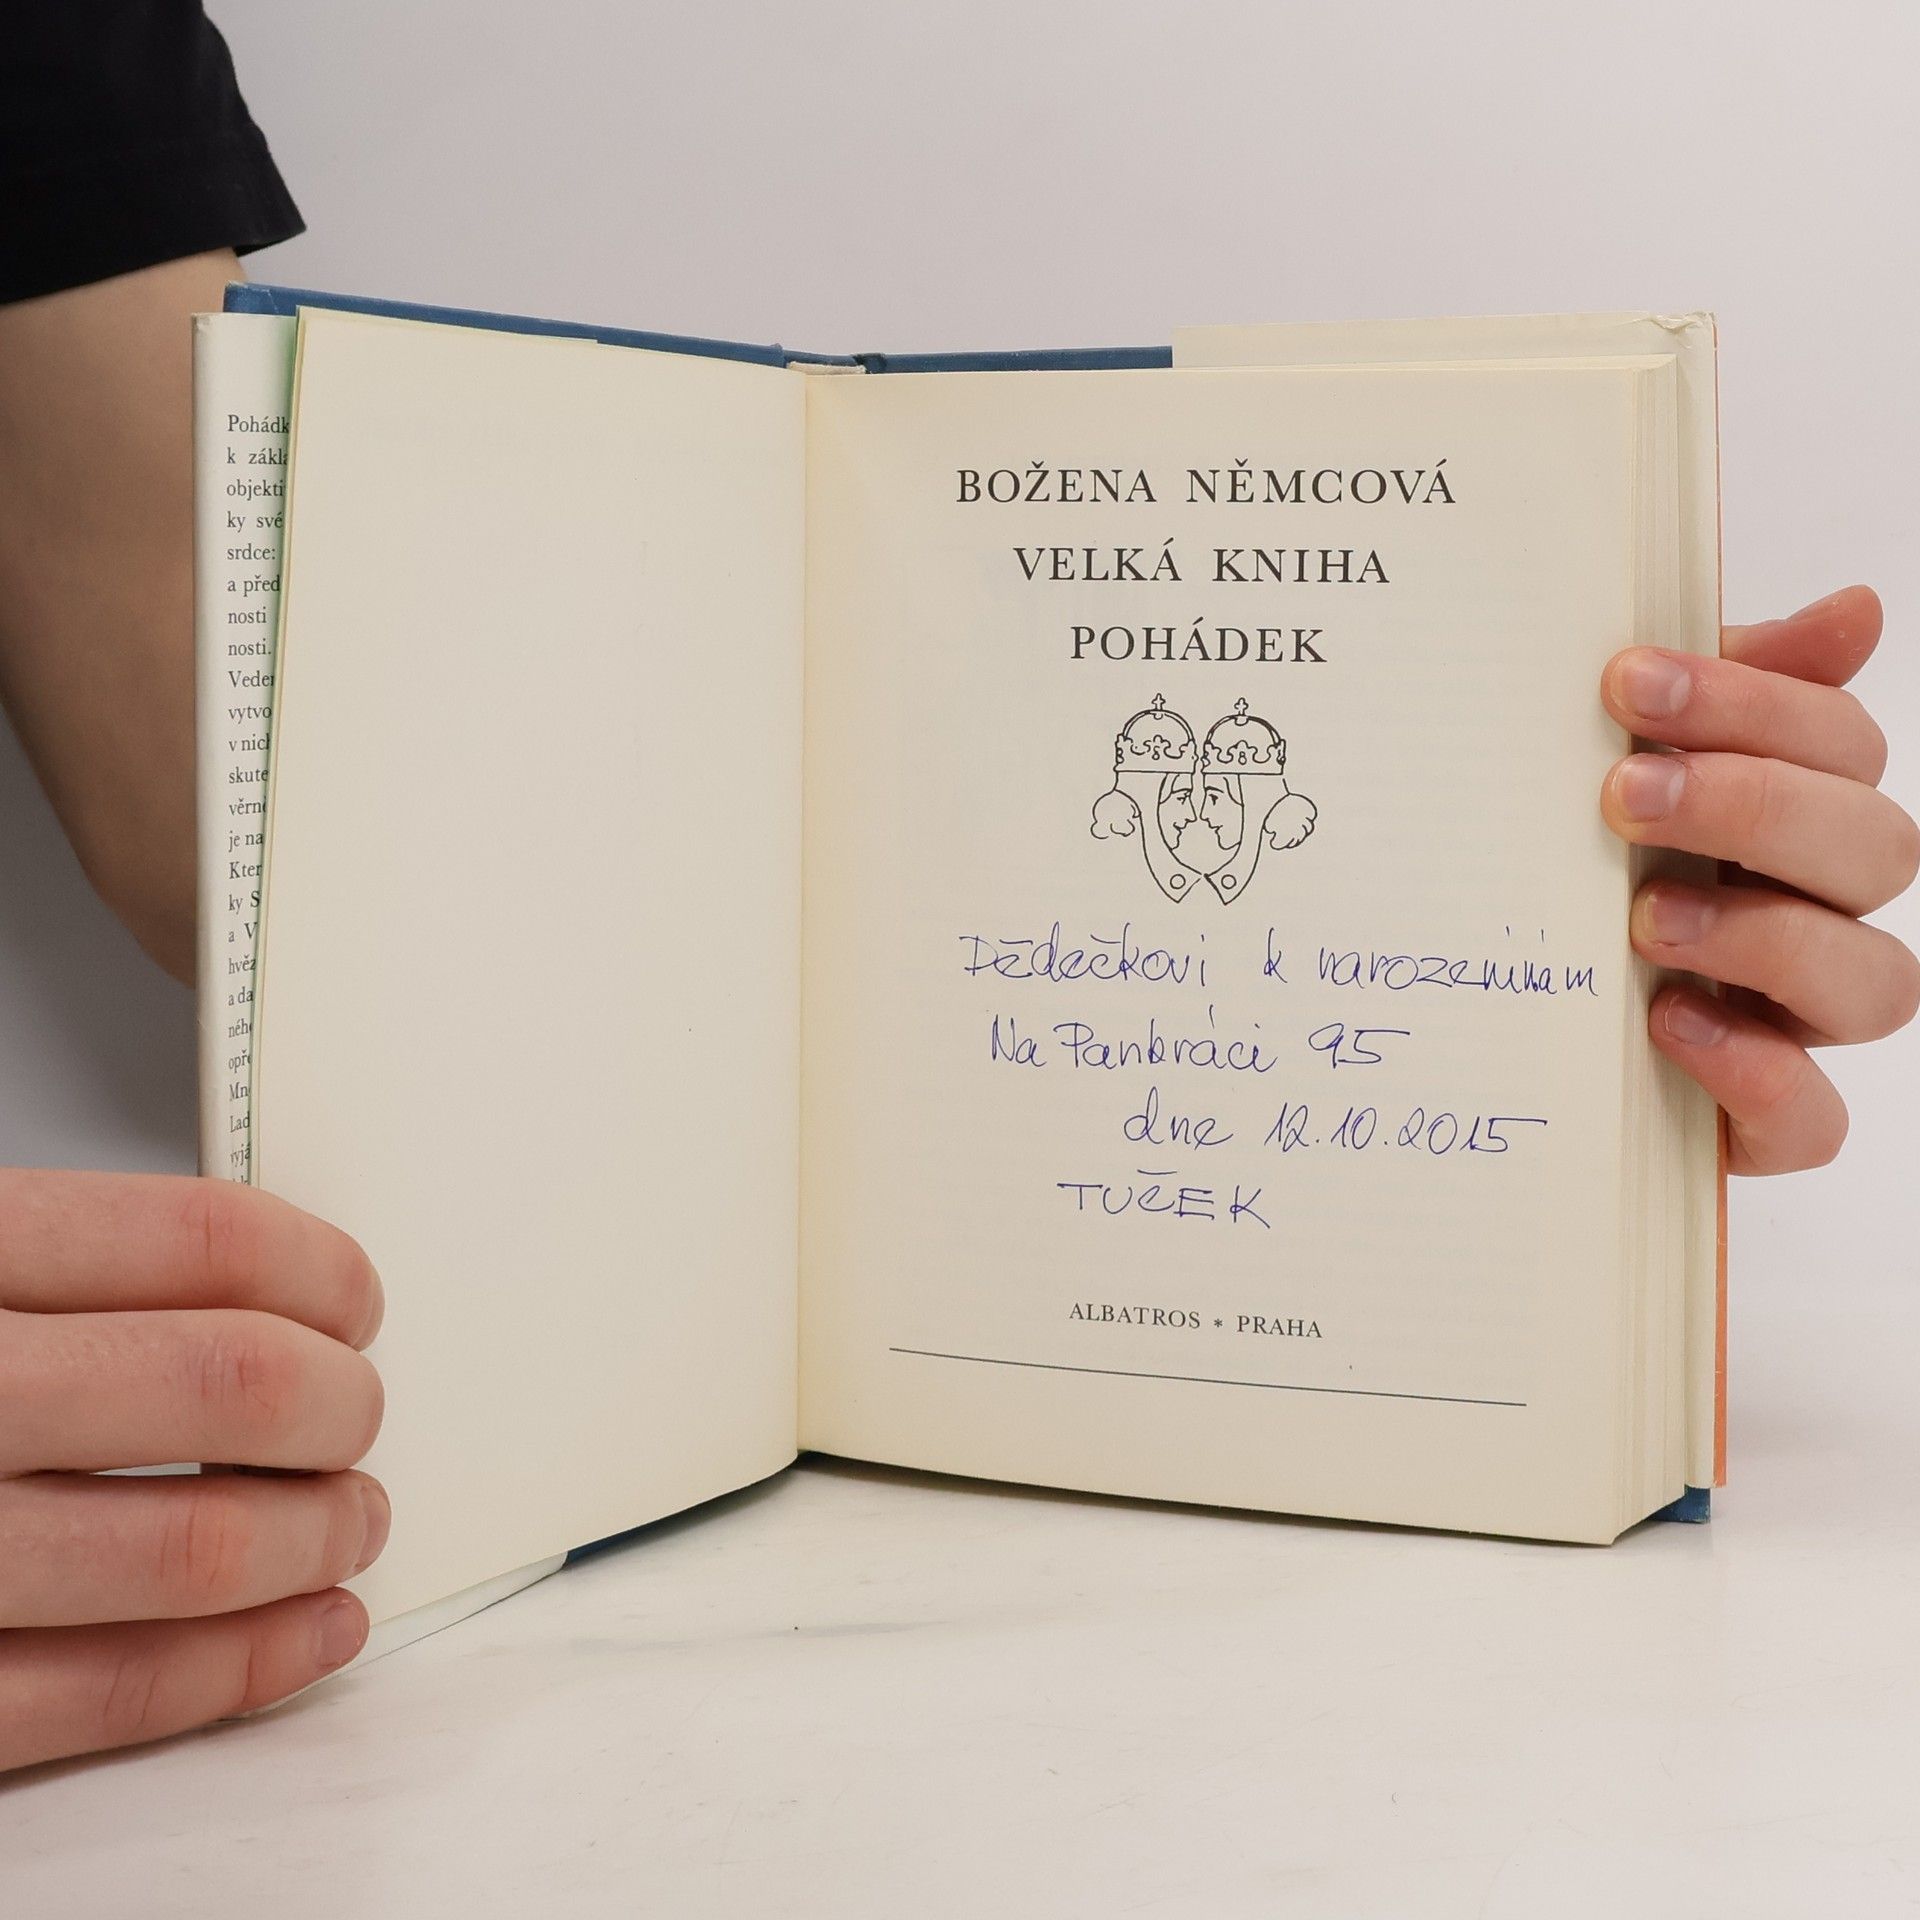 Pohádk
k zákla
objekti
ky své
srdce:
a před
nosti
nosti.
Veder
vytvo
v nich
skute
věrn
je na
Kter
ky S
a V
hvěz
a da
něh
opř
Mn
Lad
vyjá
BOŽENA NĚMCOVÁ
VELKÁ KNIHA
POHÁDEK
Dědečkovi k narozeninám
Na Pankráci 95
dne 12.10.2015
TUČEK
ALBATROS * PRAHA